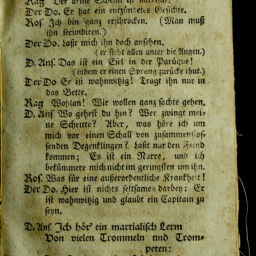 Rag. Der arme Schelm ist närrisch.
Der Do. Er hat ein entzündtes Gesichte.
Ros. Ich bin ganz erschrocken. (Man muß
ihn secundiren.)
Der Do. Laßt mich ihn doch ansehen.
(er sieht allen unter die Augen.)
D. Ans. Das ist ein Esel in der Paruque!
(indem er einen Sprung zurücke thut.)
Der Do Er ist wahnwitzig! Tragt ihn nur in
das Bette.
Rag Wohlan! Wir wollen ganz sachte gehen.
D. Ans Wo gehest du hin? Wer zwingt mei-
ne Schritte? Aber, was höre ich um
mich vor einen Schall von zusammenstos-
senden Degenklingen? Laßt nur den Feind
kommen; Es ist ein Narre, und ich
bekümmere mich nicht im geringsten um ihn.
Ros. Was für eine außerordentliche Krankheit!
Der Do. Hier ist nichts seltsames darbey: Er
ist wahnwitzig und glaubt ein Capitain zu
seyn.
D. Ans Ich hör' ein martialisch Lerm
Von vielen Trommeln und Trom-
peten: